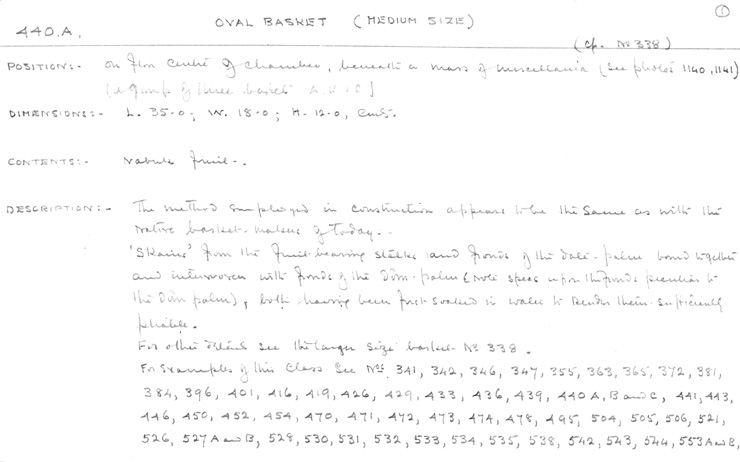 ①
OVAL BASKET (MEDIUM SIZE)
440.A.
(cf. No 338)
POSITION:- On floor centre of chamber, beneath a mass of miscellania (see photos 1140, 1141)
(a group of three baskets A. B & C)
DIMENSIONS:- L. 35-0; W. 18-0; H. 12-0, Cms.
CONTENTS:- Nabuk fruit-.
DESCRIPTION:- The method employed in construction appears to be the same as with the
native basket-makers of today.-
'Skains' from the fruit-bearing stalks and fronds of the date-palm bound together
and interwoven with fronds of the Dôm-palm (note specs upon the fronds peculiar to
the Dôm palm), both having been first soaked in water to render them sufficiently
pliable.
For other details see the larger size basket No 338.
For examples of this class see Nos. 341, 342, 346, 347, 355, 363, 365, 372, 381,
384, 396, 401, 416, 419, 426, 429, 433, 436, 439, 440 A, B and C, 441, 443,
446, 450, 452, 454, 470, 471, 472, 473, 474, 478, 495, 504, 505, 506, 521,
526, 527 A and B, 529, 530, 531, 532, 533, 534, 535, 538, 542, 543, 544, 553 A and B,